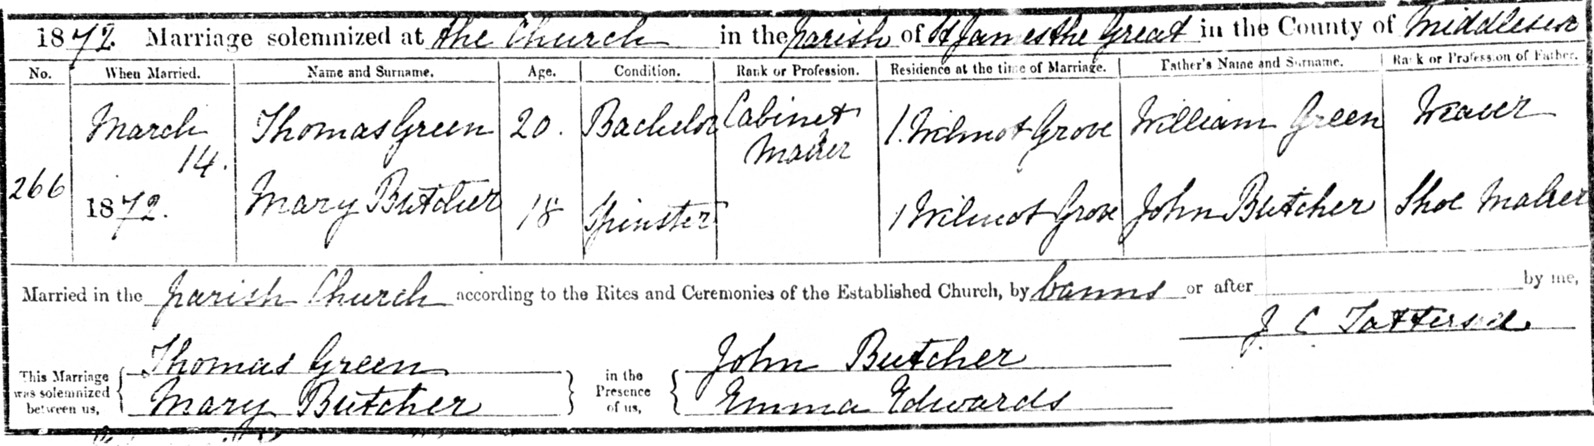 1872. Marriage solemnized at the Church in the parish of St James the Great in the County of Middlesex
No. When Married. Name and Surname. Age. Condition. Rank or Profession. Residence at the time of Marriage. Father's Name and Surname. Rank or Profession of Father.
266 March 14. 1872. Thomas Green 20. Bachelor Cabinet Maker 1. Wilmot Grove William Green Weaver
Mary Butcher 18 Spinster 1 Wilmot Grove John Butcher Shoe Maker
Married in the parish Church according to the Rites and Ceremonies of the Established Church, by banns or after by me,
J C Tattersal
This Marriage was solemnized between us, Thomas Green Mary Butcher in the Presence of us, John Butcher Emma Edwards